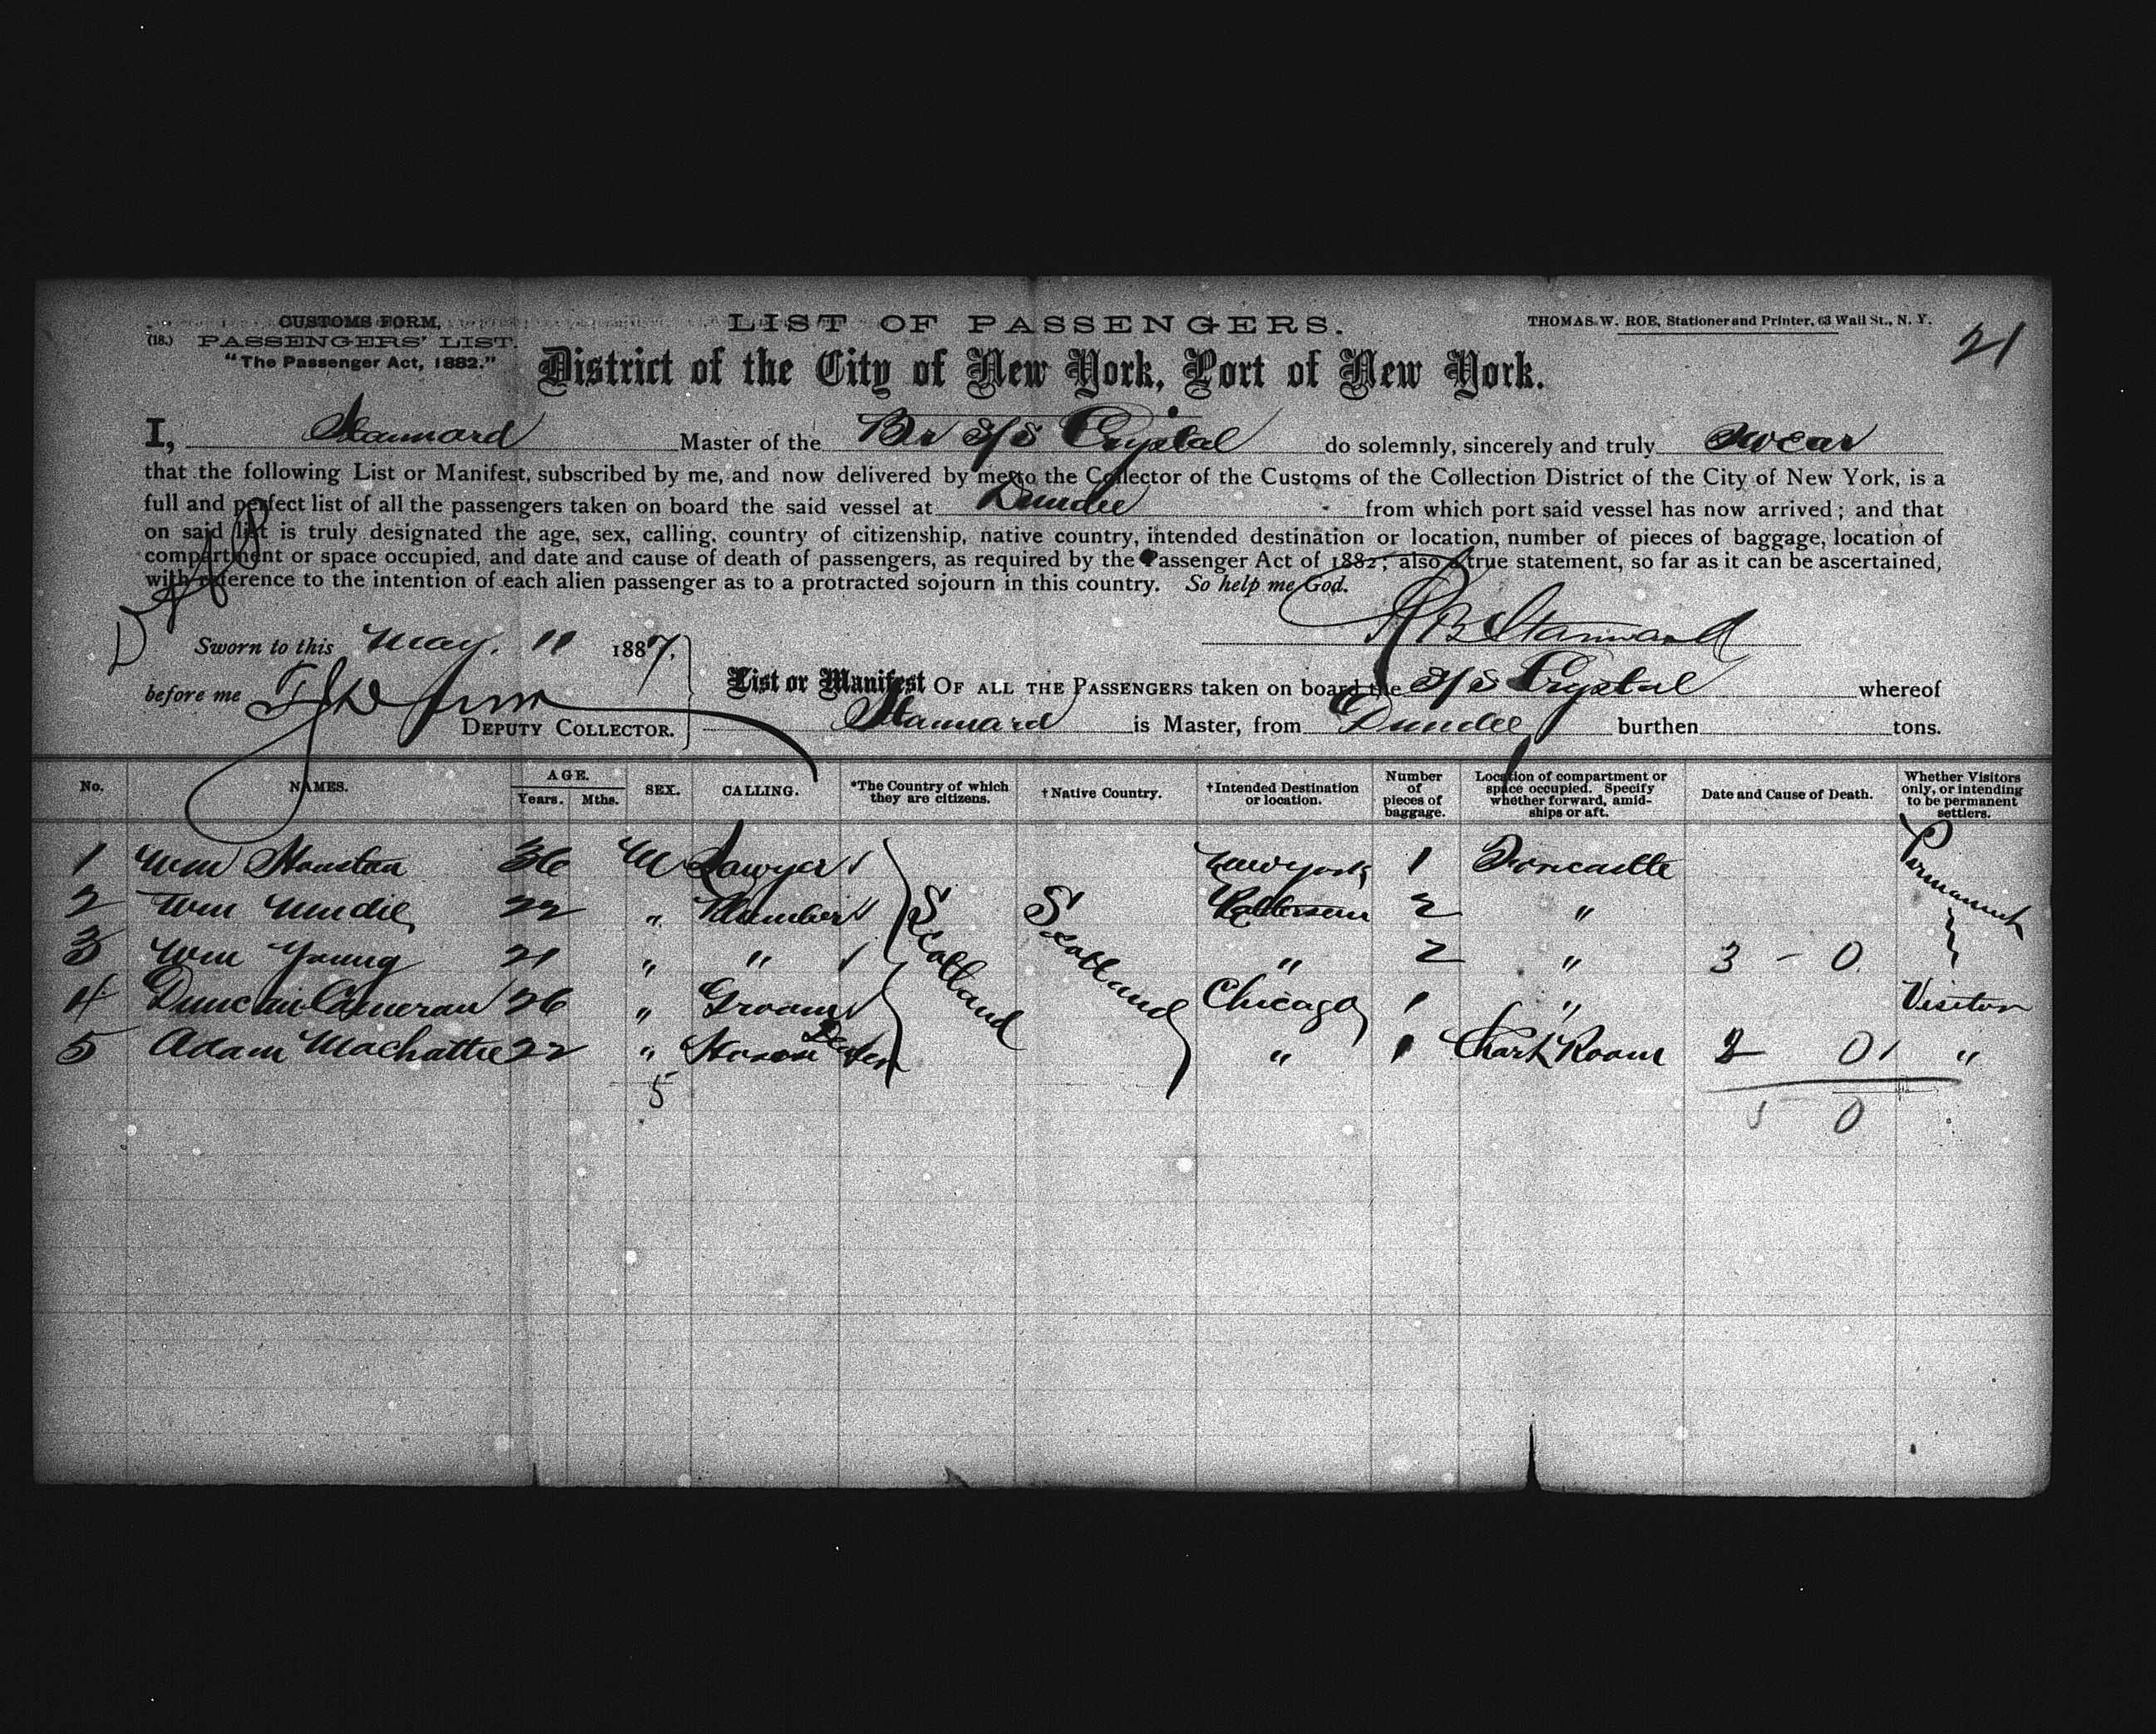 CUSTOMS FORM,
(18.) PASSENGERS' LIST.
"The Passenger Act, 1882."
LIST OF PASSENGERS.
THOMAS W. ROE, Stationer and Printer, 63 Wall St., N. Y.
21
District of the City of New York, Port of New York.
I, Stannard Master of the Br S/S Crystal do solemnly, sincerely and truly swear
that the following List or Manifest, subscribed by me, and now delivered by me to the Collector of the Customs of the Collection District of the City of New York, is a
full and perfect list of all the passengers taken on board the said vessel at Dundee from which port said vessel has now arrived; and that
on said list is truly designated the age, sex, calling, country of citizenship, native country, intended destination or location, number of pieces of baggage, location of
compartment or space occupied, and date and cause of death of passengers, as required by the Passenger Act of 1882; also a true statement, so far as it can be ascertained,
with reference to the intention of each alien passenger as to a protracted sojourn in this country. So help me God.
Sworn to this May. 11 1887,
R B Stannard
before me
DEPUTY COLLECTOR.
List or Manifest OF ALL THE PASSENGERS taken on board the S/S Crystal whereof
Stannard is Master, from Dundee burthen tons.
No. NAMES. AGE. Years. Mths. SEX. CALLING. *The Country of which they are citizens. †Native Country. †Intended Destination or location. Number of pieces of baggage. Location of compartment or space occupied. Specify whether forward, amid-ships or aft. Date and Cause of Death. Whether Visitors only, or intending to be permanent settlers.
1 Wm Houston 36 M Sawyer Scotland Scotland New York 1 Permanent
2 Wm 22 " Plumber Patterson 2 "
3 Wm Young 21 " " " 2 " 3 - 0
4 Duncan Cameron 26 " Groom Chicago 1 " Visitor
5 Adam Machattie 22 " " 1 Chart Room 2 0 "
5
5 0